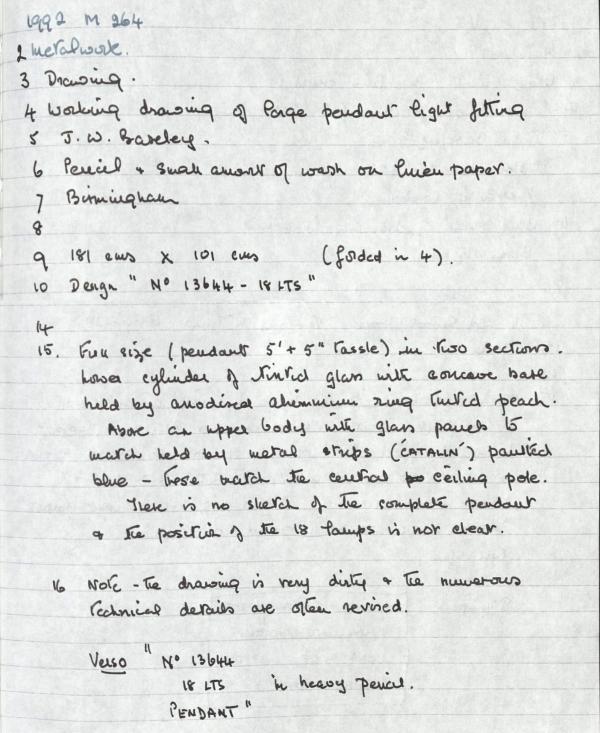 1992 M 264
2 Metalwork.
3 Drawing.
4 Working drawing of large pendant light fitting
5 J. W. Bareley.
6 Pencil & small amount of wash on linen paper.
7 Birmingham
8
9 181 cms X 101 cms (folded in 4).
10 Design " Nº 13644 - 18 LTS "
14
15. Full size (pendant 5' + 5" tassle) in two sections.
Lower cylinder of tinted glass with concave base
held by anodised aluminium ring tinted peach.
Above an upper body with glass panels to
match held by metal strips ('CATALIN') painted
blue - these match the central ceiling pole.
There is no sketch of the complete pendant
& the position of the 18 lamps is not clear.
16 Note - the drawing is very dirty & the numerous
technical details are often revised.
Verso " Nº 13644
18 LTS in heavy pencil.
PENDANT "